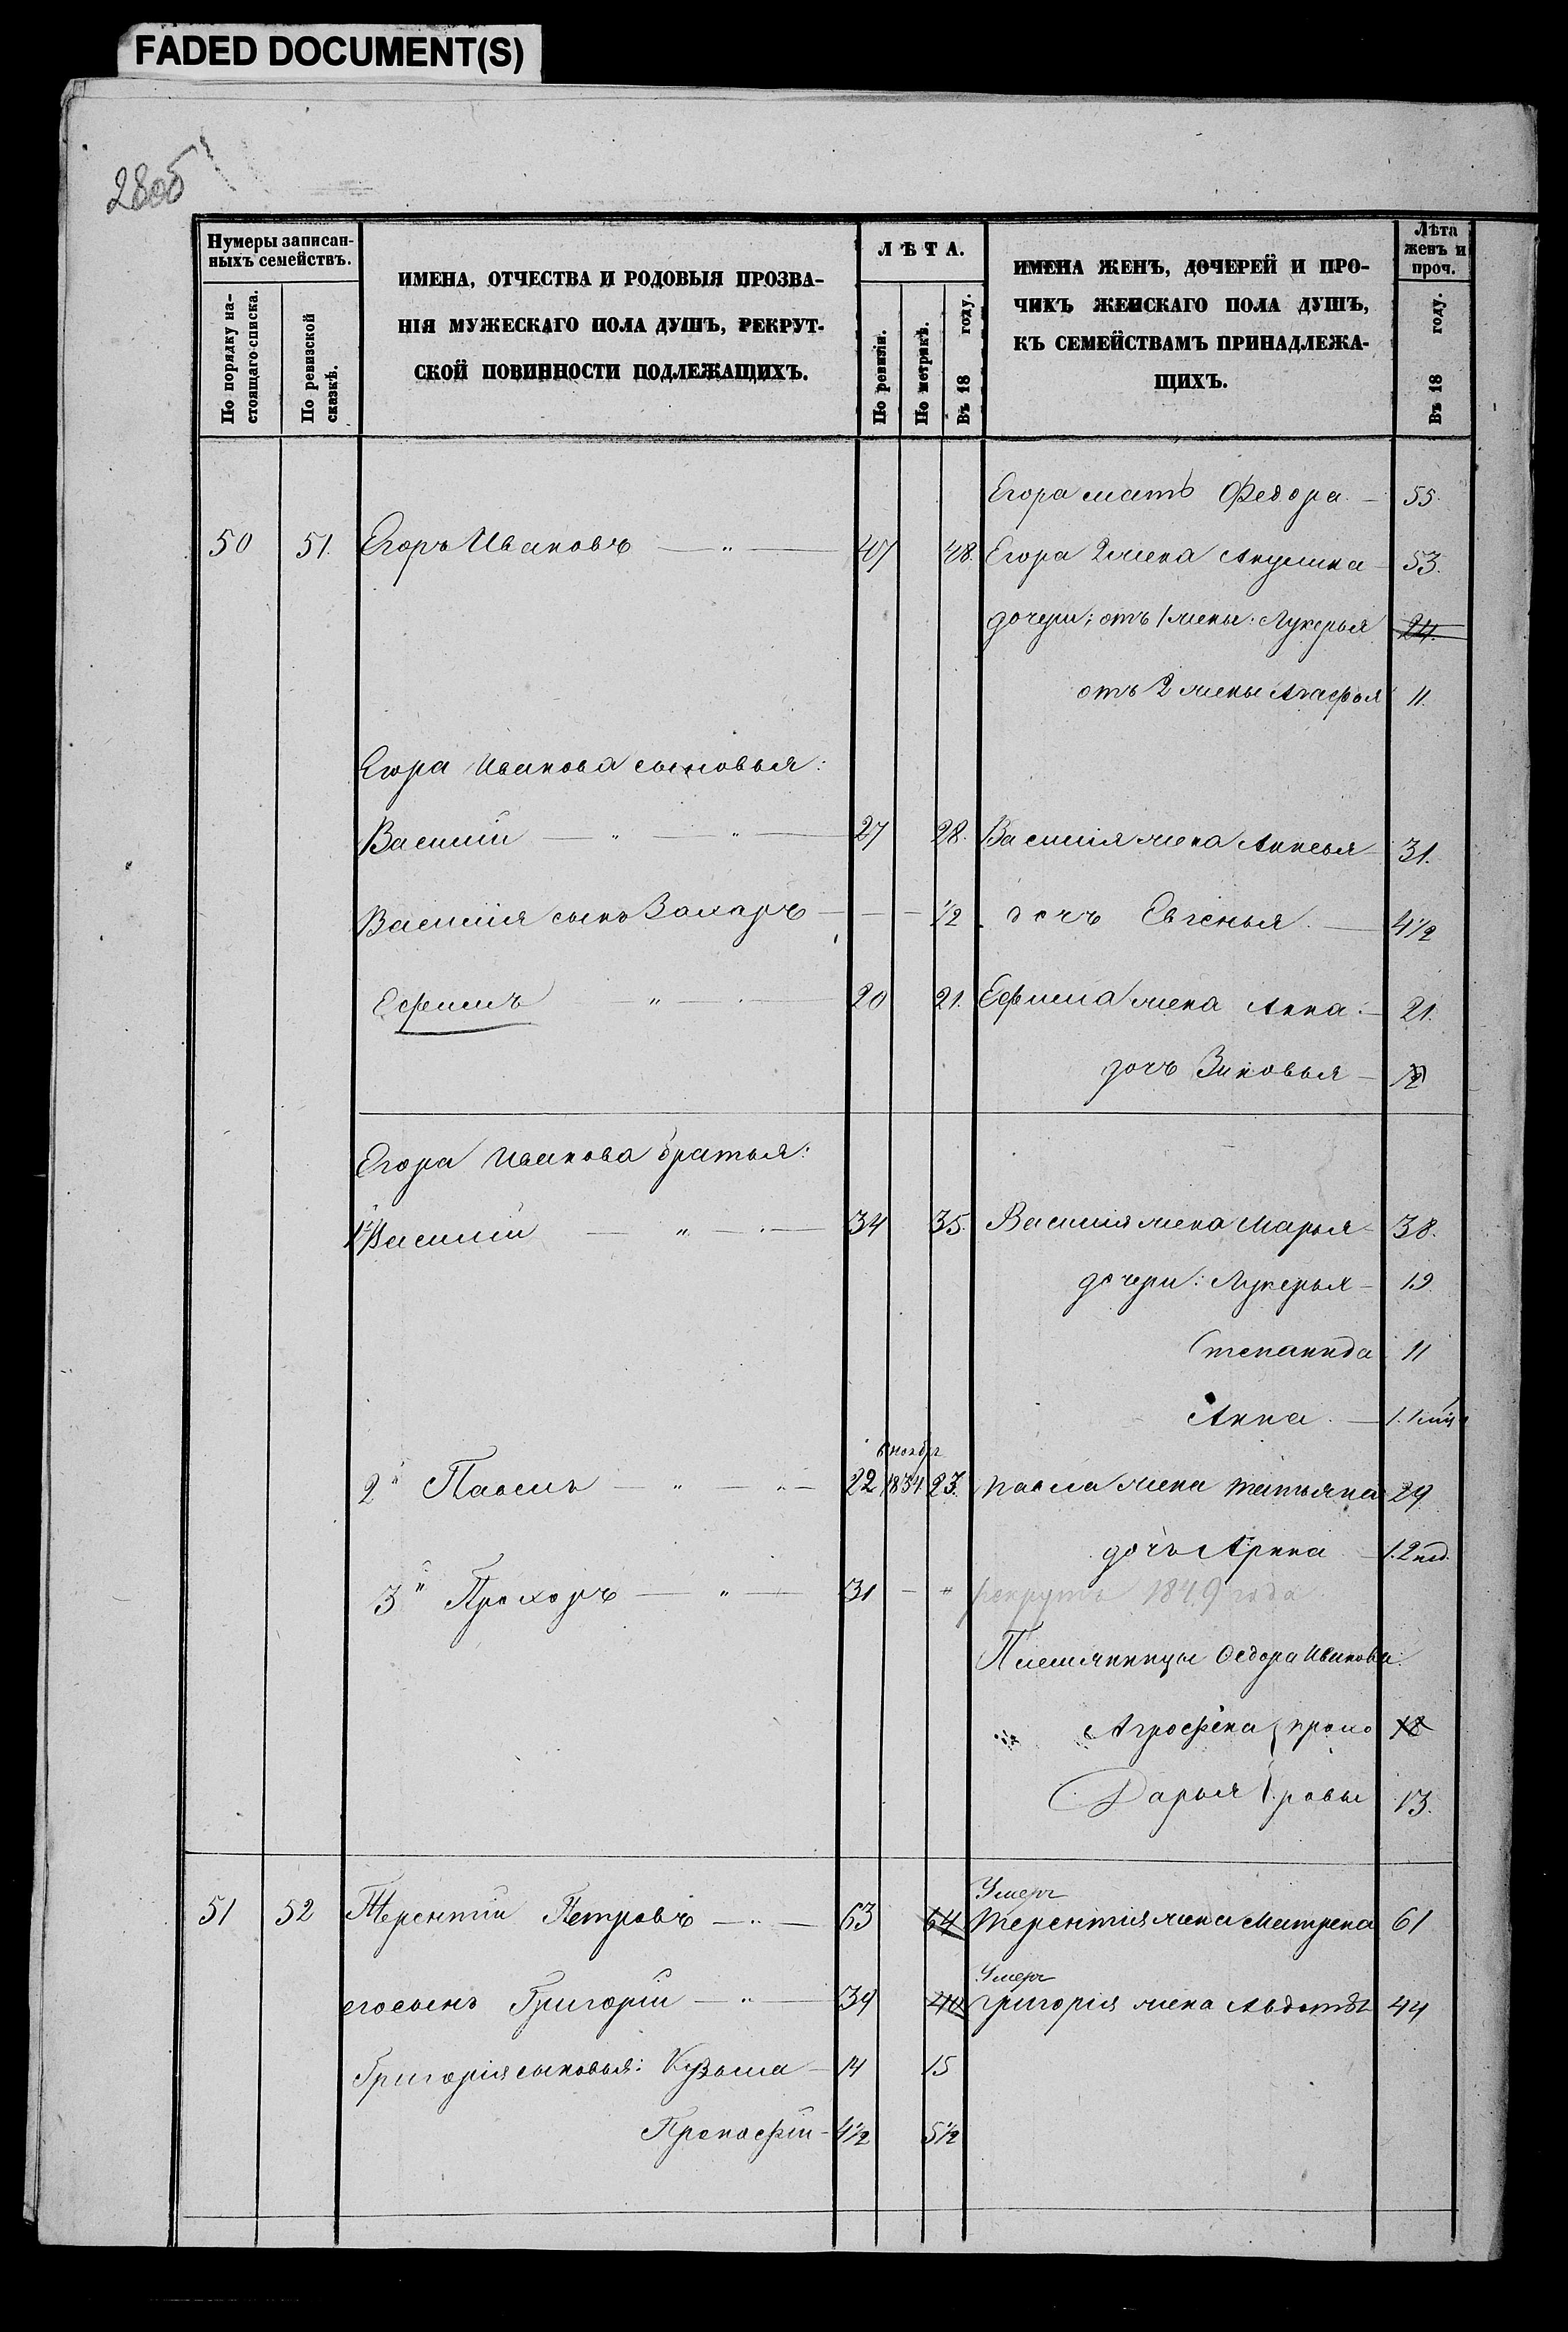 FADED DOCUMENT(S)
280б
Нумеры записан-
ныхъ семействъ.
По порядку на-
стоящаго списка.
По ревизской
сказкѣ.
ИМЕНА, ОТЧЕСТВА И РОДОВЫЯ ПРОЗВА-
НІЯ МУЖЕСКАГО ПОЛА ДУШЪ, РЕКРУТ-
СКОЙ ПОВИННОСТИ ПОДЛЕЖАЩИХЪ.
ЛѢТА.
По ревизіи.
По метрикѣ.
Въ 18 году.
ИМЕНА ЖЕНЪ, ДОЧЕРЕЙ И ПРО-
ЧИХЪ ЖЕНСКАГО ПОЛА ДУШЪ,
КЪ СЕМЕЙСТВАМЪ ПРИНАДЛЕЖА-
ЩИХЪ.
Лѣта
женъ и
проч.
Въ 18 году.
Егора мать Федора — 55.
50 51. Егоръ Ивановъ — „ — 47 48. Егора 2 жена Акулина — 53.
дочери: отъ 1 жены: Лукерья 24.
отъ 2 жены Агафья 11.
Егора Иванова сыновья:
Василій — „ — „ — 27 28. Василія жена Аксинья 31.
Василія сынъ Захаръ — — — 1/2 дочь Евгенья. — 4 1/2
Ефимъ — „ — 20 21. Ефима жена Анна. — 21.
дочь Зиновья —
Егора Иванова братья:
1й Василій — „ — 34 35. Василія жена Марья 38.
дочери: Лукерья — 19.
Степанида 11
Анна. —
ноября
2й Павелъ — „ — „ — 22 1834. 23. Павла жена Татьяна 29
дочь Арина — 1. 2 нед.
3й Прохоръ — „ — 31 — „ рекрутъ 1849 года
Племянницы Федора Иванова:
Агрофена } прохо 18
Дарья } ровы 13.
51 52 Терентій Петровъ — „ — 63 64 Умеръ
Терентія жена Матрена 61
его сынъ Григорій — „ — 39 40 Умеръ
Григорія жена Авдотья 44
Григорія сыновья: Кузьма — 14 15
Прокофій — 4 1/2 5 1/2